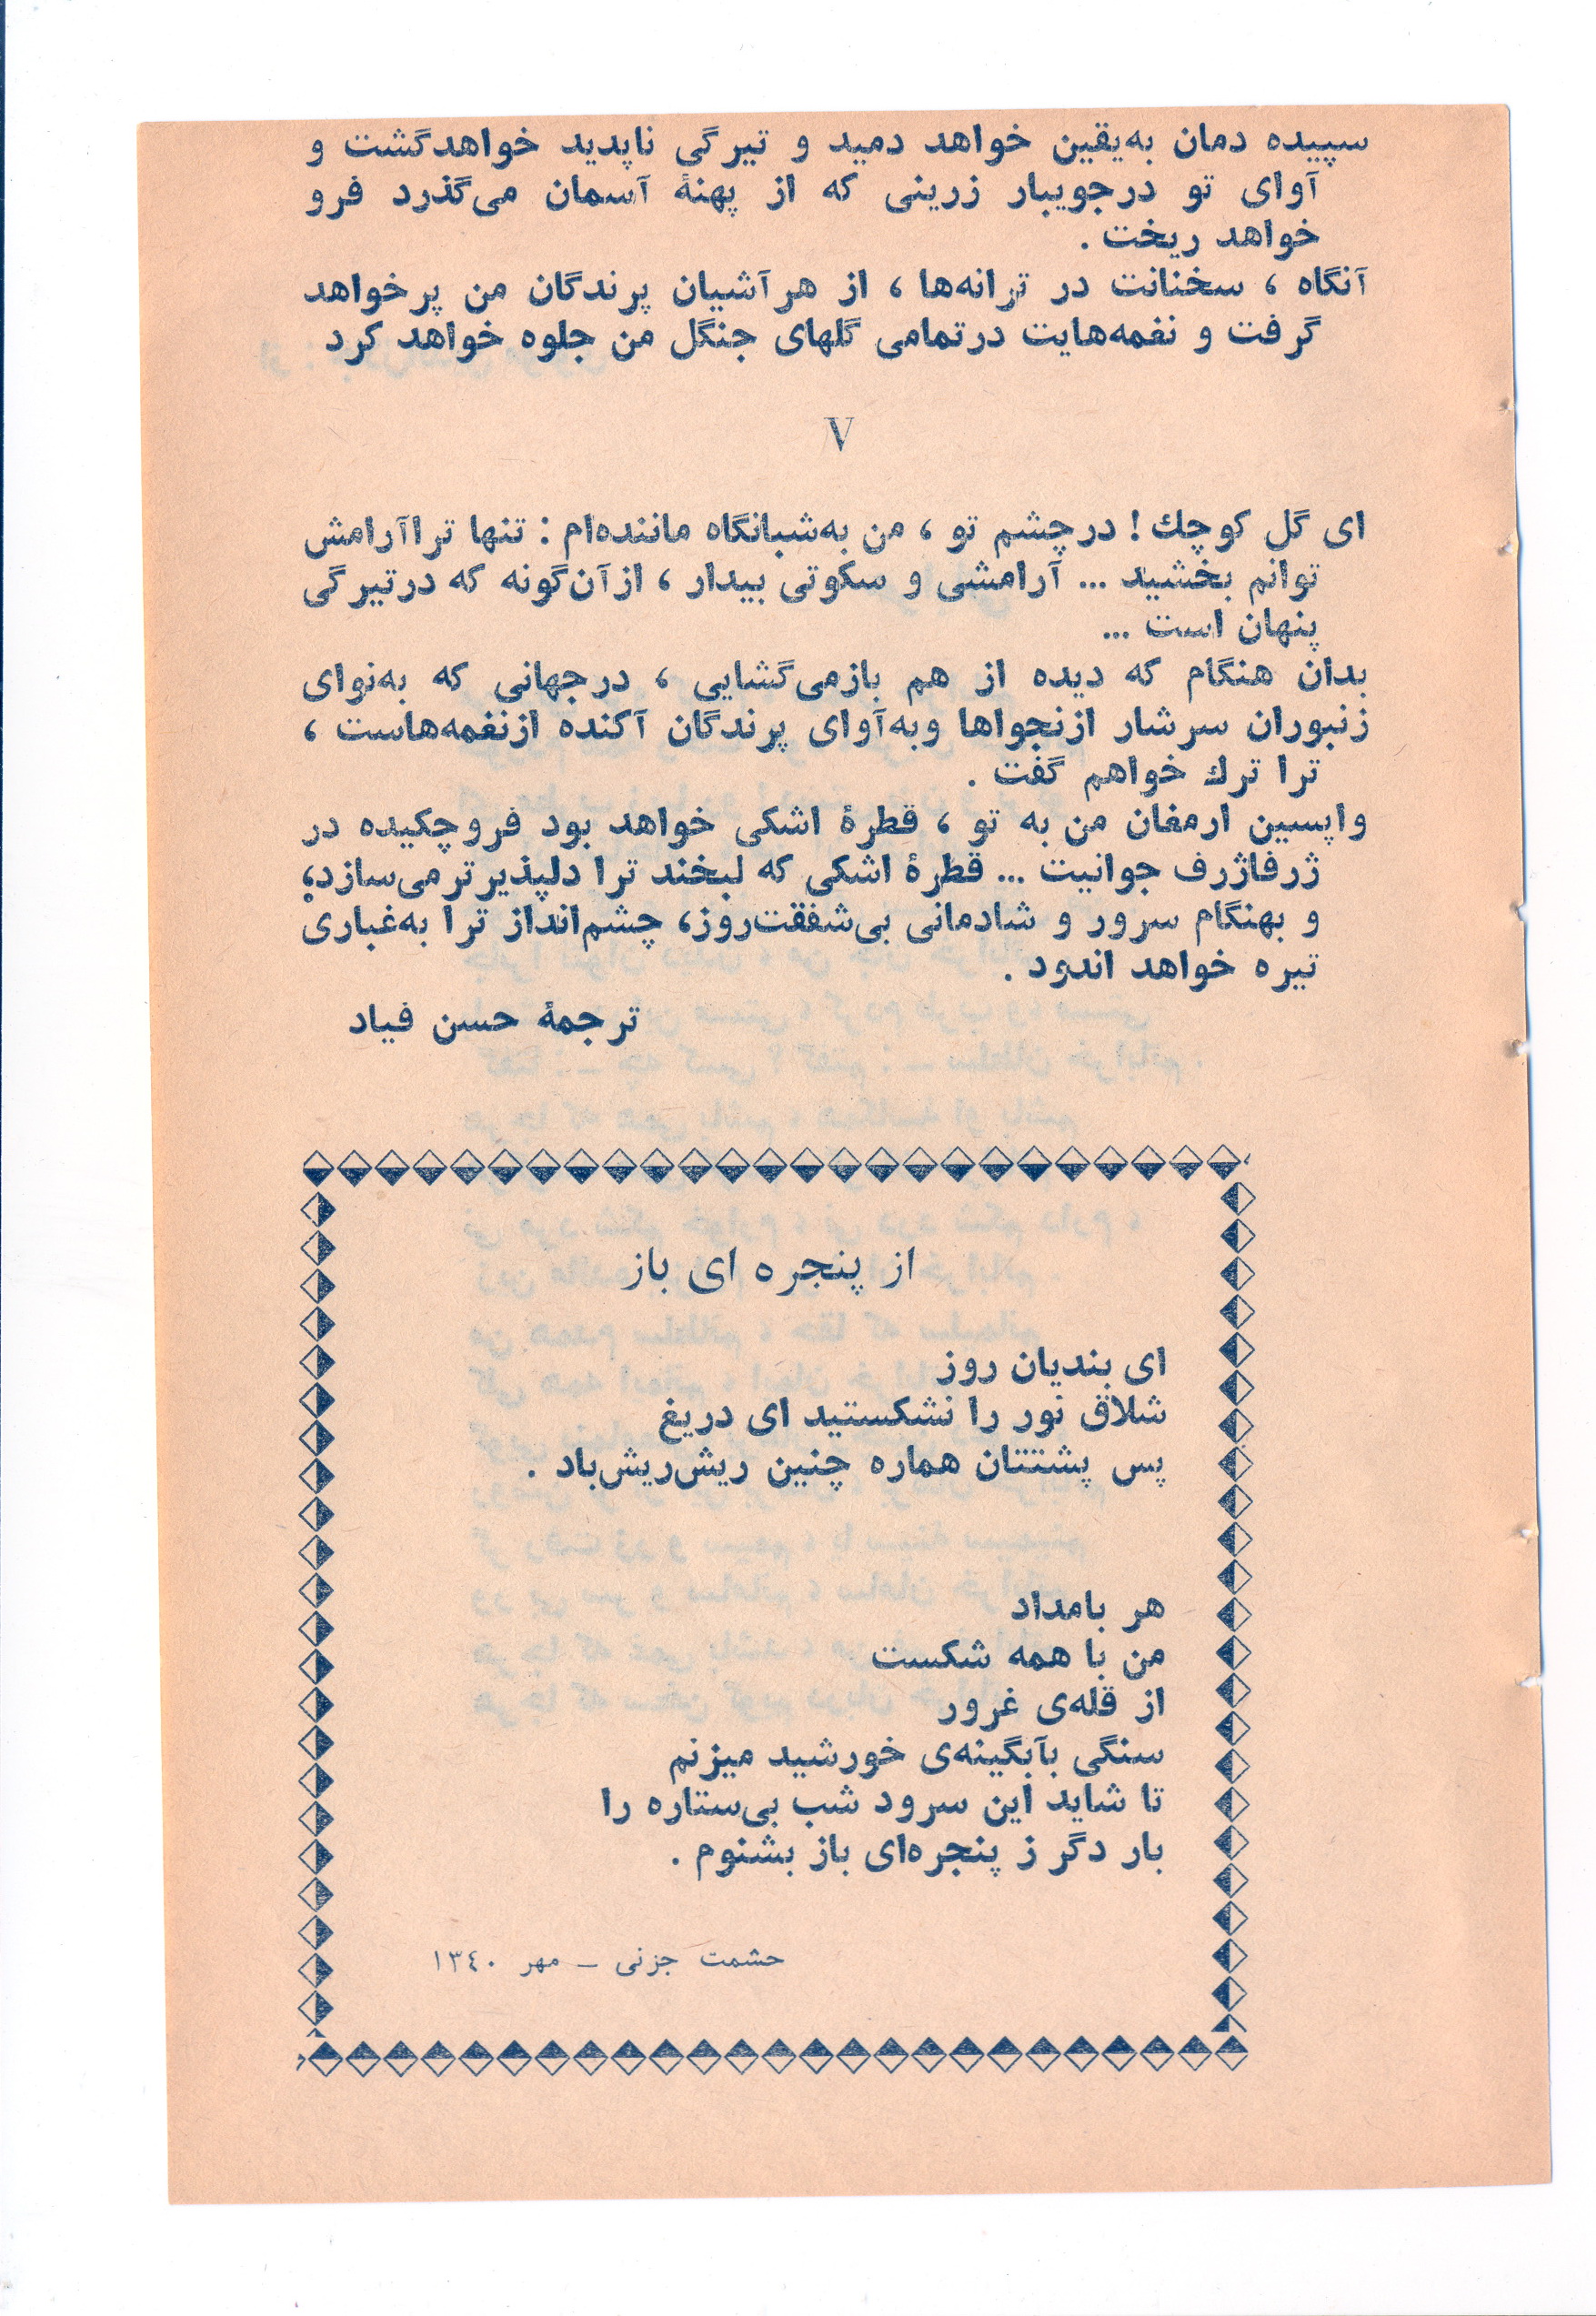 سپیده دمان به‌یقین خواهد دمید و تیرگی ناپدید خواهدگشت و
آوای تو درجویبار زرینی که از پهنهٔ آسمان می‌گذرد فرو
خواهد ریخت .
آنگاه ، سخنانت در ترانه‌ها ، از هرآشیان پرندگان من پرخواهد
گرفت و نغمه‌هایت درتمامی گلهای جنگل من جلوه خواهد کرد
V
ای گل کوچك ! درچشم تو ، من به‌شبانگاه ماننده‌ام : تنها تراآرامش
توانم بخشید ... آرامشی و سکوتی بیدار ، ازآن‌گونه که درتیرگی
پنهان است ...
بدان هنگام که دیده از هم بازمی‌گشایی ، درجهانی که به‌نوای
زنبوران سرشار ازنجواها وبه‌آوای پرندگان آکنده ازنغمه‌هاست ،
ترا ترك خواهم گفت .
واپسین ارمغان من به تو ، قطرهٔ اشکی خواهد بود فروچکیده در
ژرفاژرف جوانیت ... قطرهٔ اشکی که لبخند ترا دلپذیرترمی‌سازد،
و بهنگام سرور و شادمانی بی‌شفقت‌روز، چشم‌انداز ترا به‌غباری
تیره خواهد اندود .
ترجمهٔ حسن فیاد
از پنجره ای باز
ای بندیان روز
شلاق نور را نشکستید ای دریغ
پس پشتتان هماره چنین ریش‌ریش‌باد .
هر بامداد
من با همه شکست
از قله‌ی غرور
سنگی بآبگینه‌ی خورشید میزنم
تا شاید این سرود شب بی‌ستاره را
بار دگر ز پنجره‌ای باز بشنوم .
حشمت جزنی – مهر ۱۳٤۰